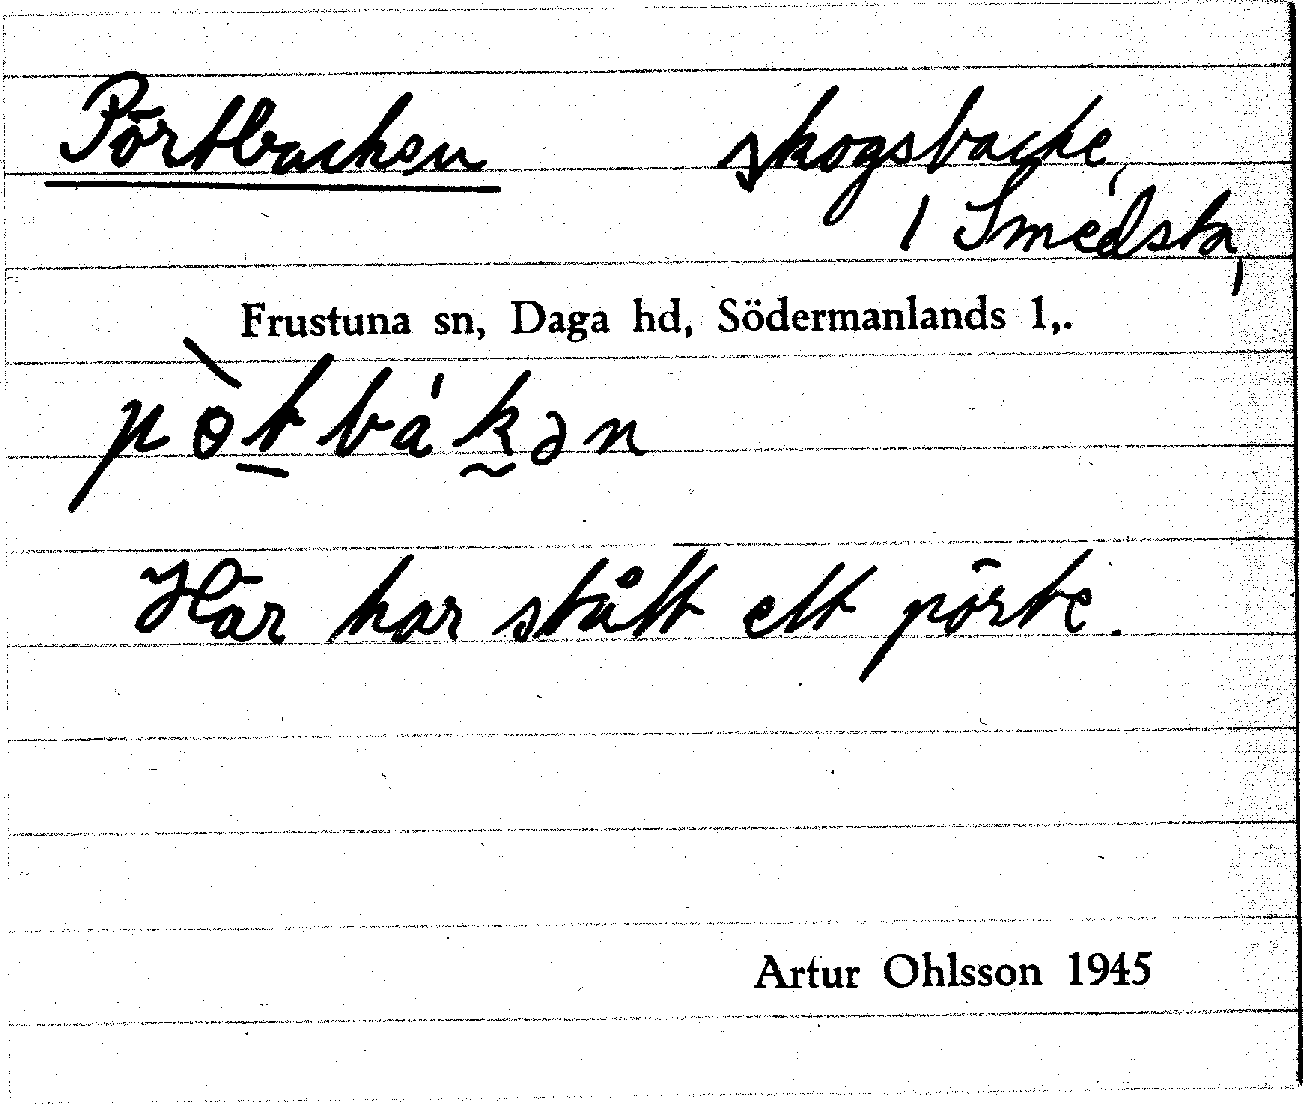 Pörtbacken skogsbacke,
/ Smedsta,
Frustuna sn, Daga hd, Södermanlands l,.
pɵ̀t̠bák̰ən
Här har stått ett pörte.
Artur Ohlsson 1945